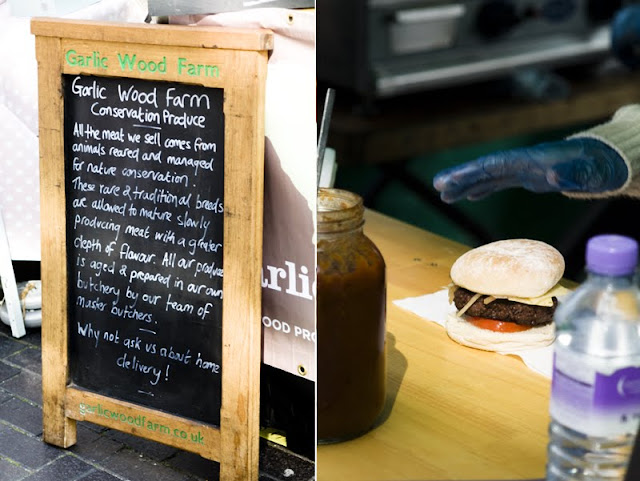 Garlic Wood Farm
Garlic Wood Farm
Conservation Produce
All the meat we sell comes from
animals reared and managed
for nature conservation.
These rare & traditional breeds
are allowed to mature slowly
producing meat with a greater
depth of flavour. All our produce
is aged & prepared in our own
butchery by our team of
master butchers.
Why not ask us about home
delivery!
garlicwoodfarm.co.uk
arlic
OOD PRO